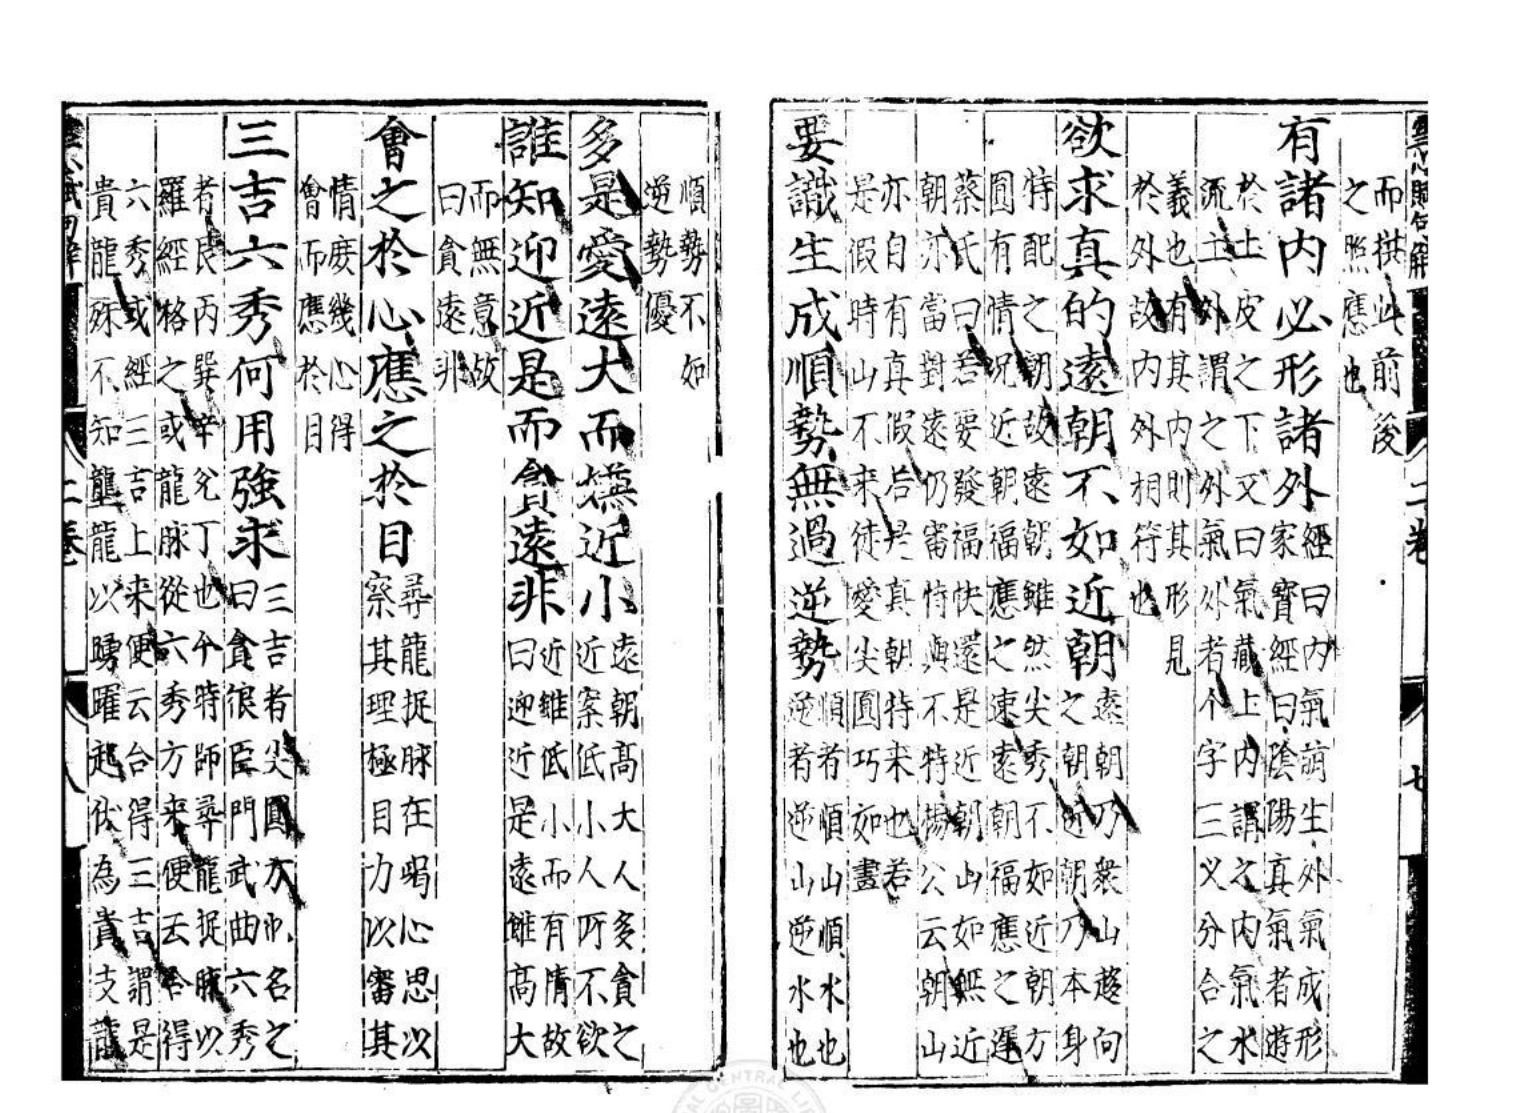 雪心賦句解 二卷 七
而拱此前後
之照應也
有諸內必形諸外
經曰內氣萌生外氣成形
家寶經曰陰陽真氣者遊
於土皮之下又曰氣藏土內謂之內氣水
流土外謂之外氣外者个字三义分合之
義也有其內則其形見
於外故內外相符也
欲求真的遠朝不如近朝
遠朝乃衆山趨向
之朝近朝乃本身
特配之朝故遠朝雖然尖秀不如近朝方
圓有情况近朝福應之速遠朝福應之遲
蔡氏曰若要發福快還是近朝山如無近
朝亦當對遠仍審特與不特楊公云朝山
亦自有真假后是真朝特来也若
是假時山不来徒愛尖圓巧如畫
要識生成順勢無過逆勢
順者順山順水也
逆者逆山逆水也
順勢不如
逆勢優
多是愛遠大而嫌近小
遠朝高大人多貪之
近案低小人所不欲
誰知迎近是而貪遠非
近雖低小而有情故
曰迎近是遠雖高大
而無意故
曰貪遠非
會之於心應之於目
尋龍捉脉在竭心思以
察其理極目力以審其
情庻幾心得
會而應於目
三吉六秀何用強求
三吉者尖圓方巾名之
曰貪狼臣門武曲六秀
者艮丙巽辛兊丁也今時師尋龍捉脉以
羅經格之或龍脉從六秀方来便云合得
六秀或經三吉上来便云合得三吉謂是
貴龍殊不知壟龍以踴躍起伏為貴支龍